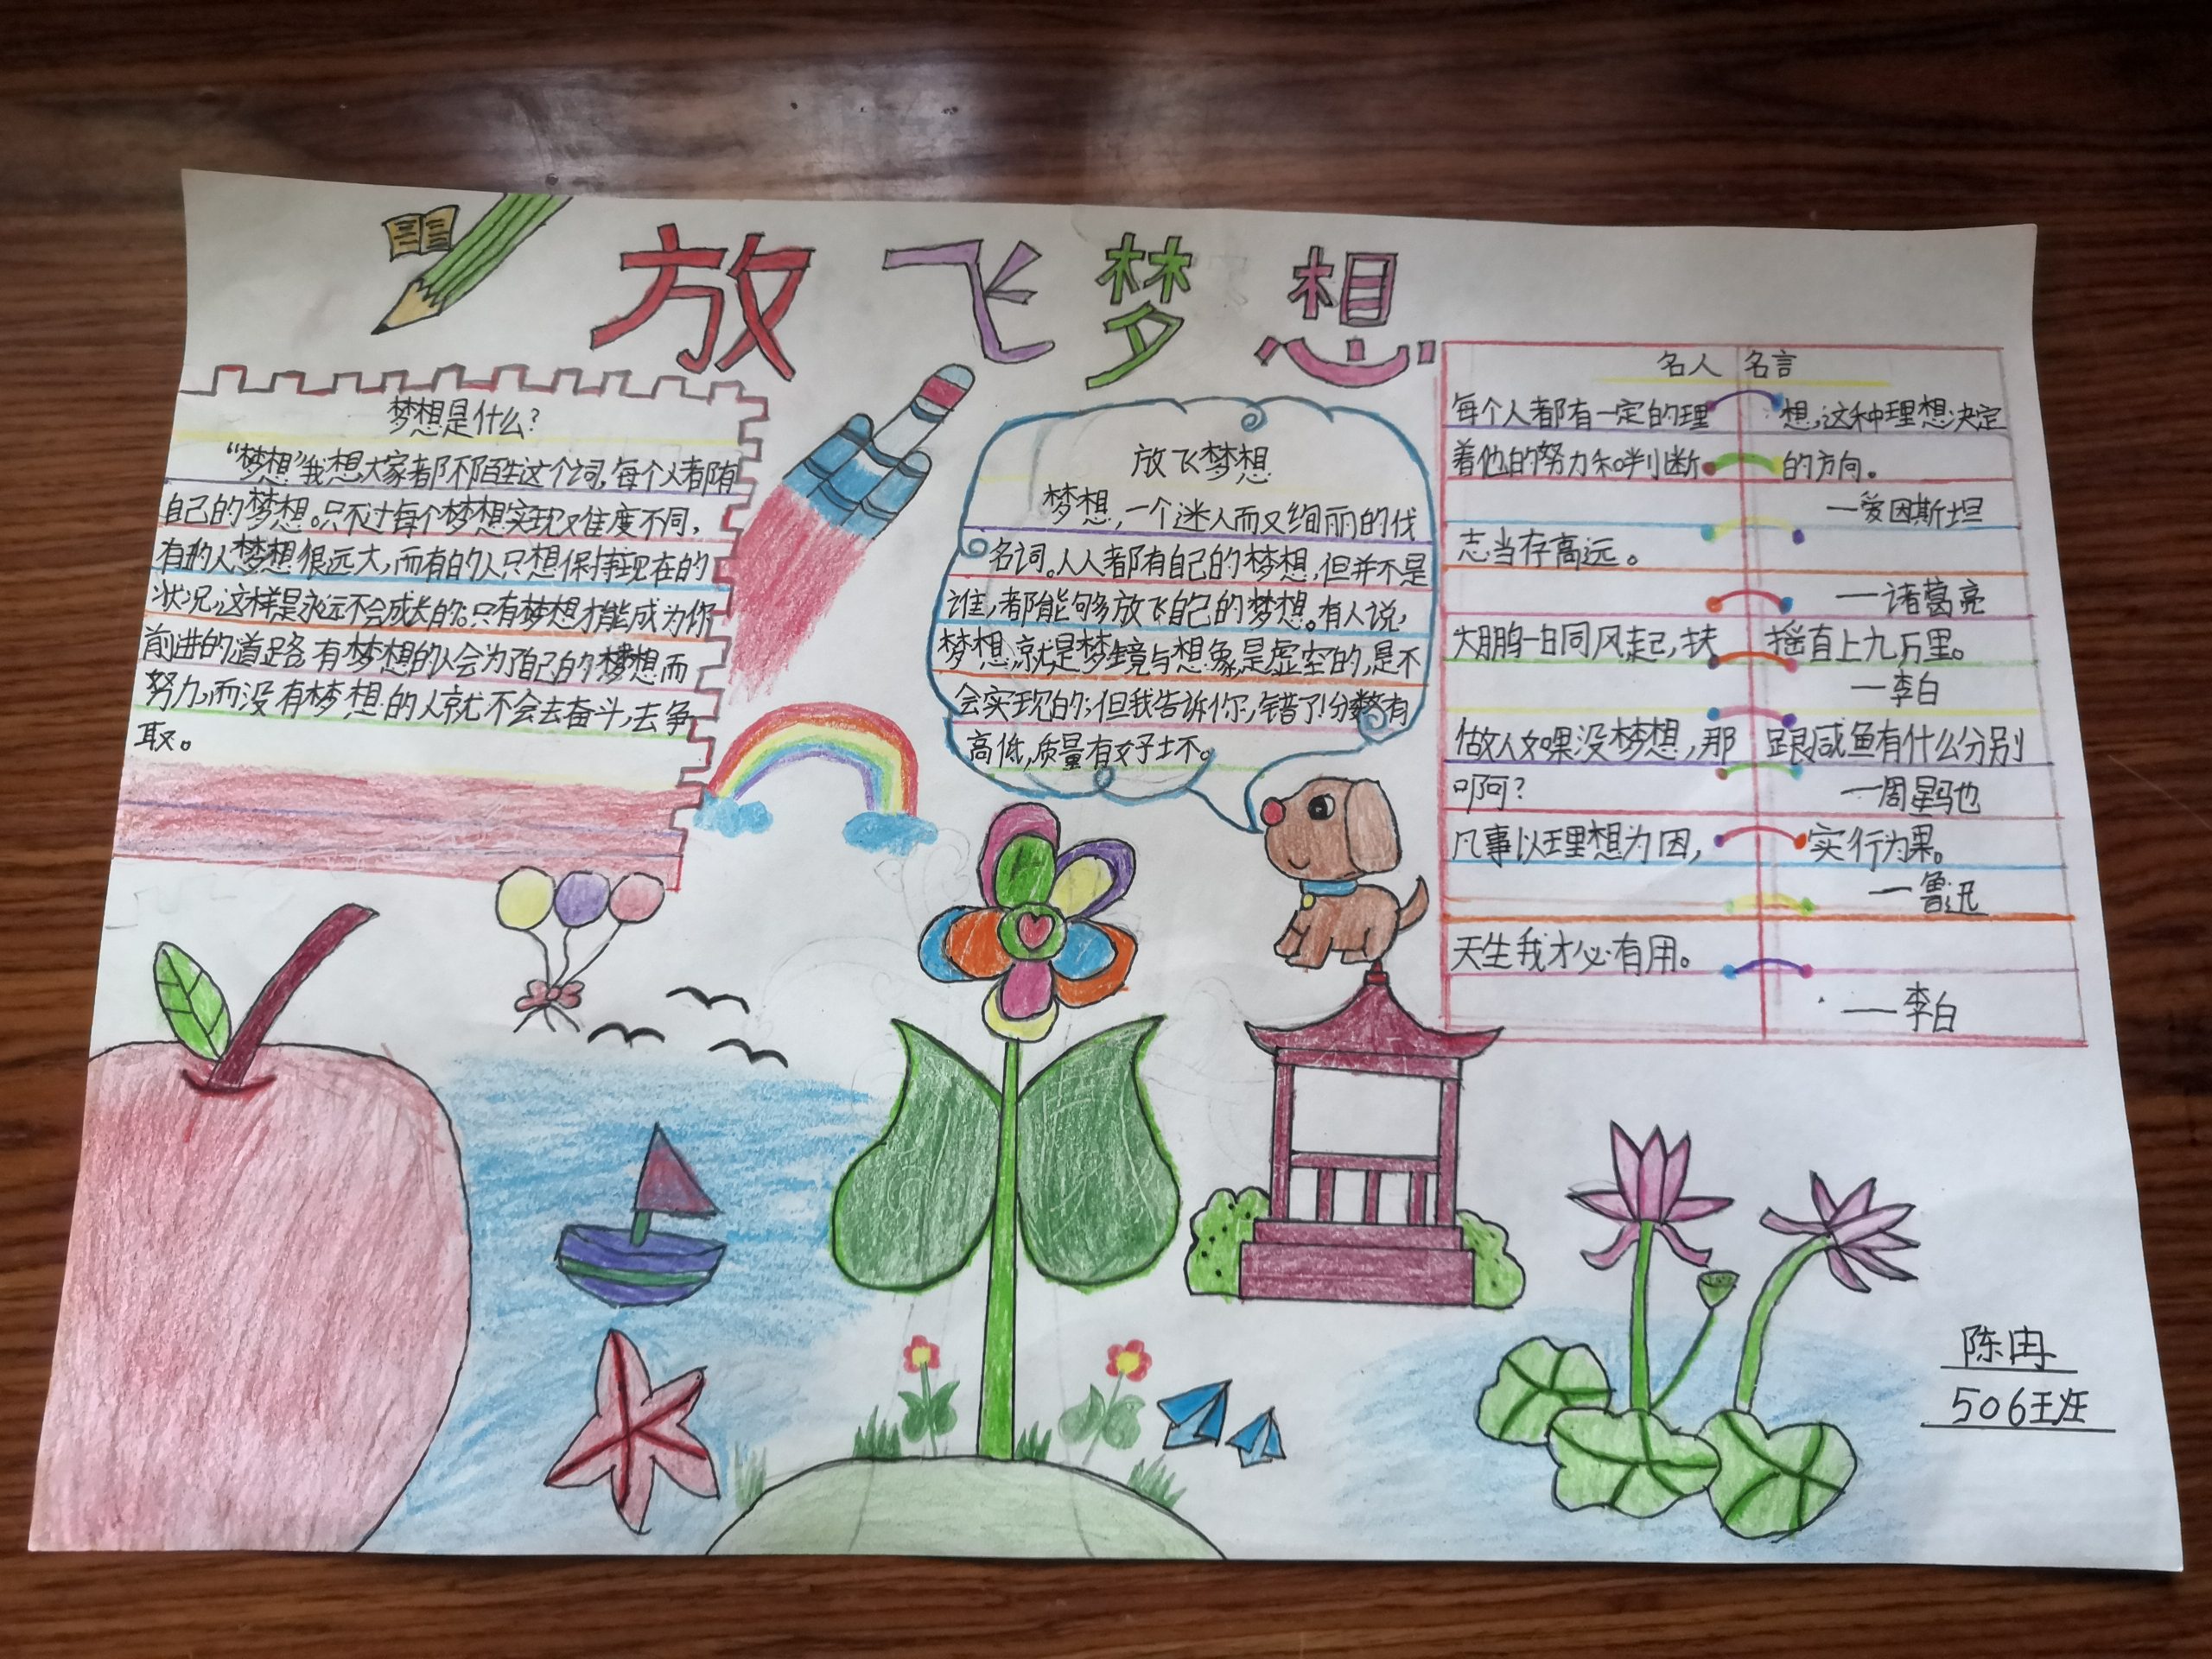 放飞梦想
梦想是什么?
“梦想”我想大家都不陌生这个词,每个人都有
自己的梦想。只不过每个梦想实现难度不同,
有的人梦想很远大,而有的人只想保持现在的
状况,这样是永远不会成长的。只有梦想才能成为你
前进的道路,有梦想的人会为了自己的梦想而
努力,而没有梦想的人就不会去奋斗,去争
取。
放飞梦想
梦想,一个迷人而又绚丽的代
名词。人人都有自己的梦想,但并不是
谁,都能够放飞自己的梦想。有人说,
梦想,就是梦境与想象,是虚空的,是不
会实现的;但我告诉你,错了!分数有
高低,质量有好坏。
名人名言
每个人都有一定的理想,这种理想决定
着他的努力和判断的方向。
—爱因斯坦
志当存高远。
—诸葛亮
大鹏一日同风起,扶摇直上九万里。
—李白
做人如果没梦想,那跟咸鱼有什么分别
啊?
—周星驰
凡事以理想为因,实行为果。
—鲁迅
天生我才必有用。
——李白
陈冉
506班